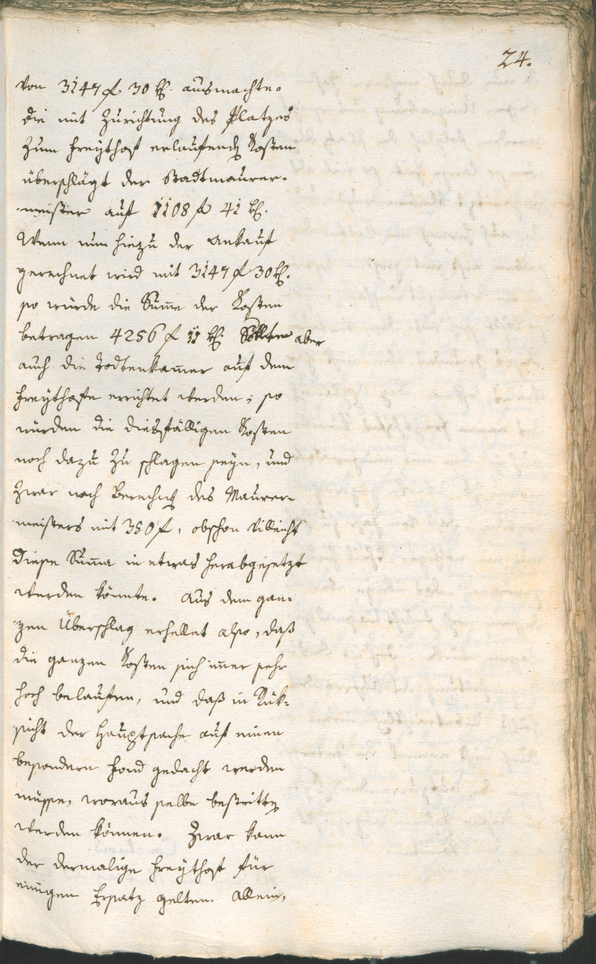 24.
von 3147 f 30 kr. ausmachte.
Die mit Zurichtung des Platzes
zum Freythof erlaufende Kosten
überschlägt der Stadtmaurer-
meister auf 1108 f 41 kr.
Wenn nun hiezu der Ankauf
gerechnet wird mit 3147 f 30 kr.
so würde die Summe der Kosten
betragen 4256 f 11 kr. Sollte aber
auch die Todtenkamer auf dem
Freythofe errichtet werden; so
würden die diesfälligen Kosten
noch dazu zu schlagen seyn, und
zwar nach Berechng des Maurer-
meisters mit 350 f, obschon villeicht
diese Suma in etwas herabgesetzt
werden könnte. Aus dem gan-
zen Überschlag erhellet also, daß
die ganzen Kosten sich imer sehr
hoch belaufen, und daß in Rük-
sicht der Hauptsache auf einen
besondern Fond gedacht werden
müsse, woraus selbe bestritten
werden können. Zwar kann
der dermalige Freythof für
einigen Ersatz gelten. Allein,